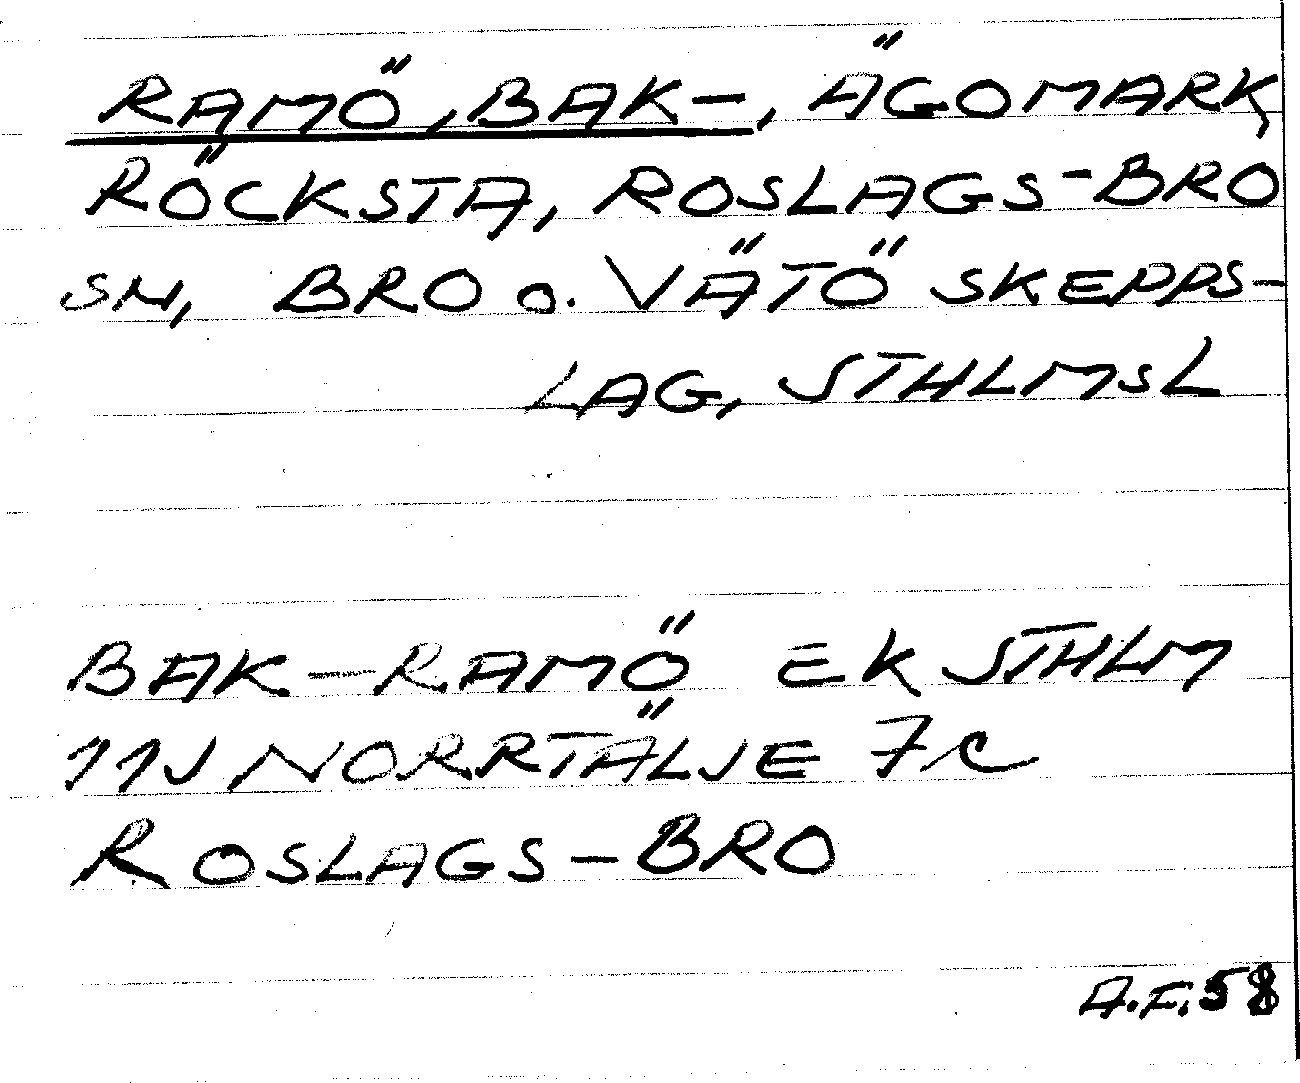 RAMÖ, BAK-, ÄGOMARK,
RÖCKSTA, ROSLAGS-BRO
SN, BRO o. VÄTÖ SKEPPS-
LAG, STHLMSL
BAK-RAMÖ EK STHLM
11J NORRTÄLJE 7c
ROSLAGS-BRO
A.F. 58